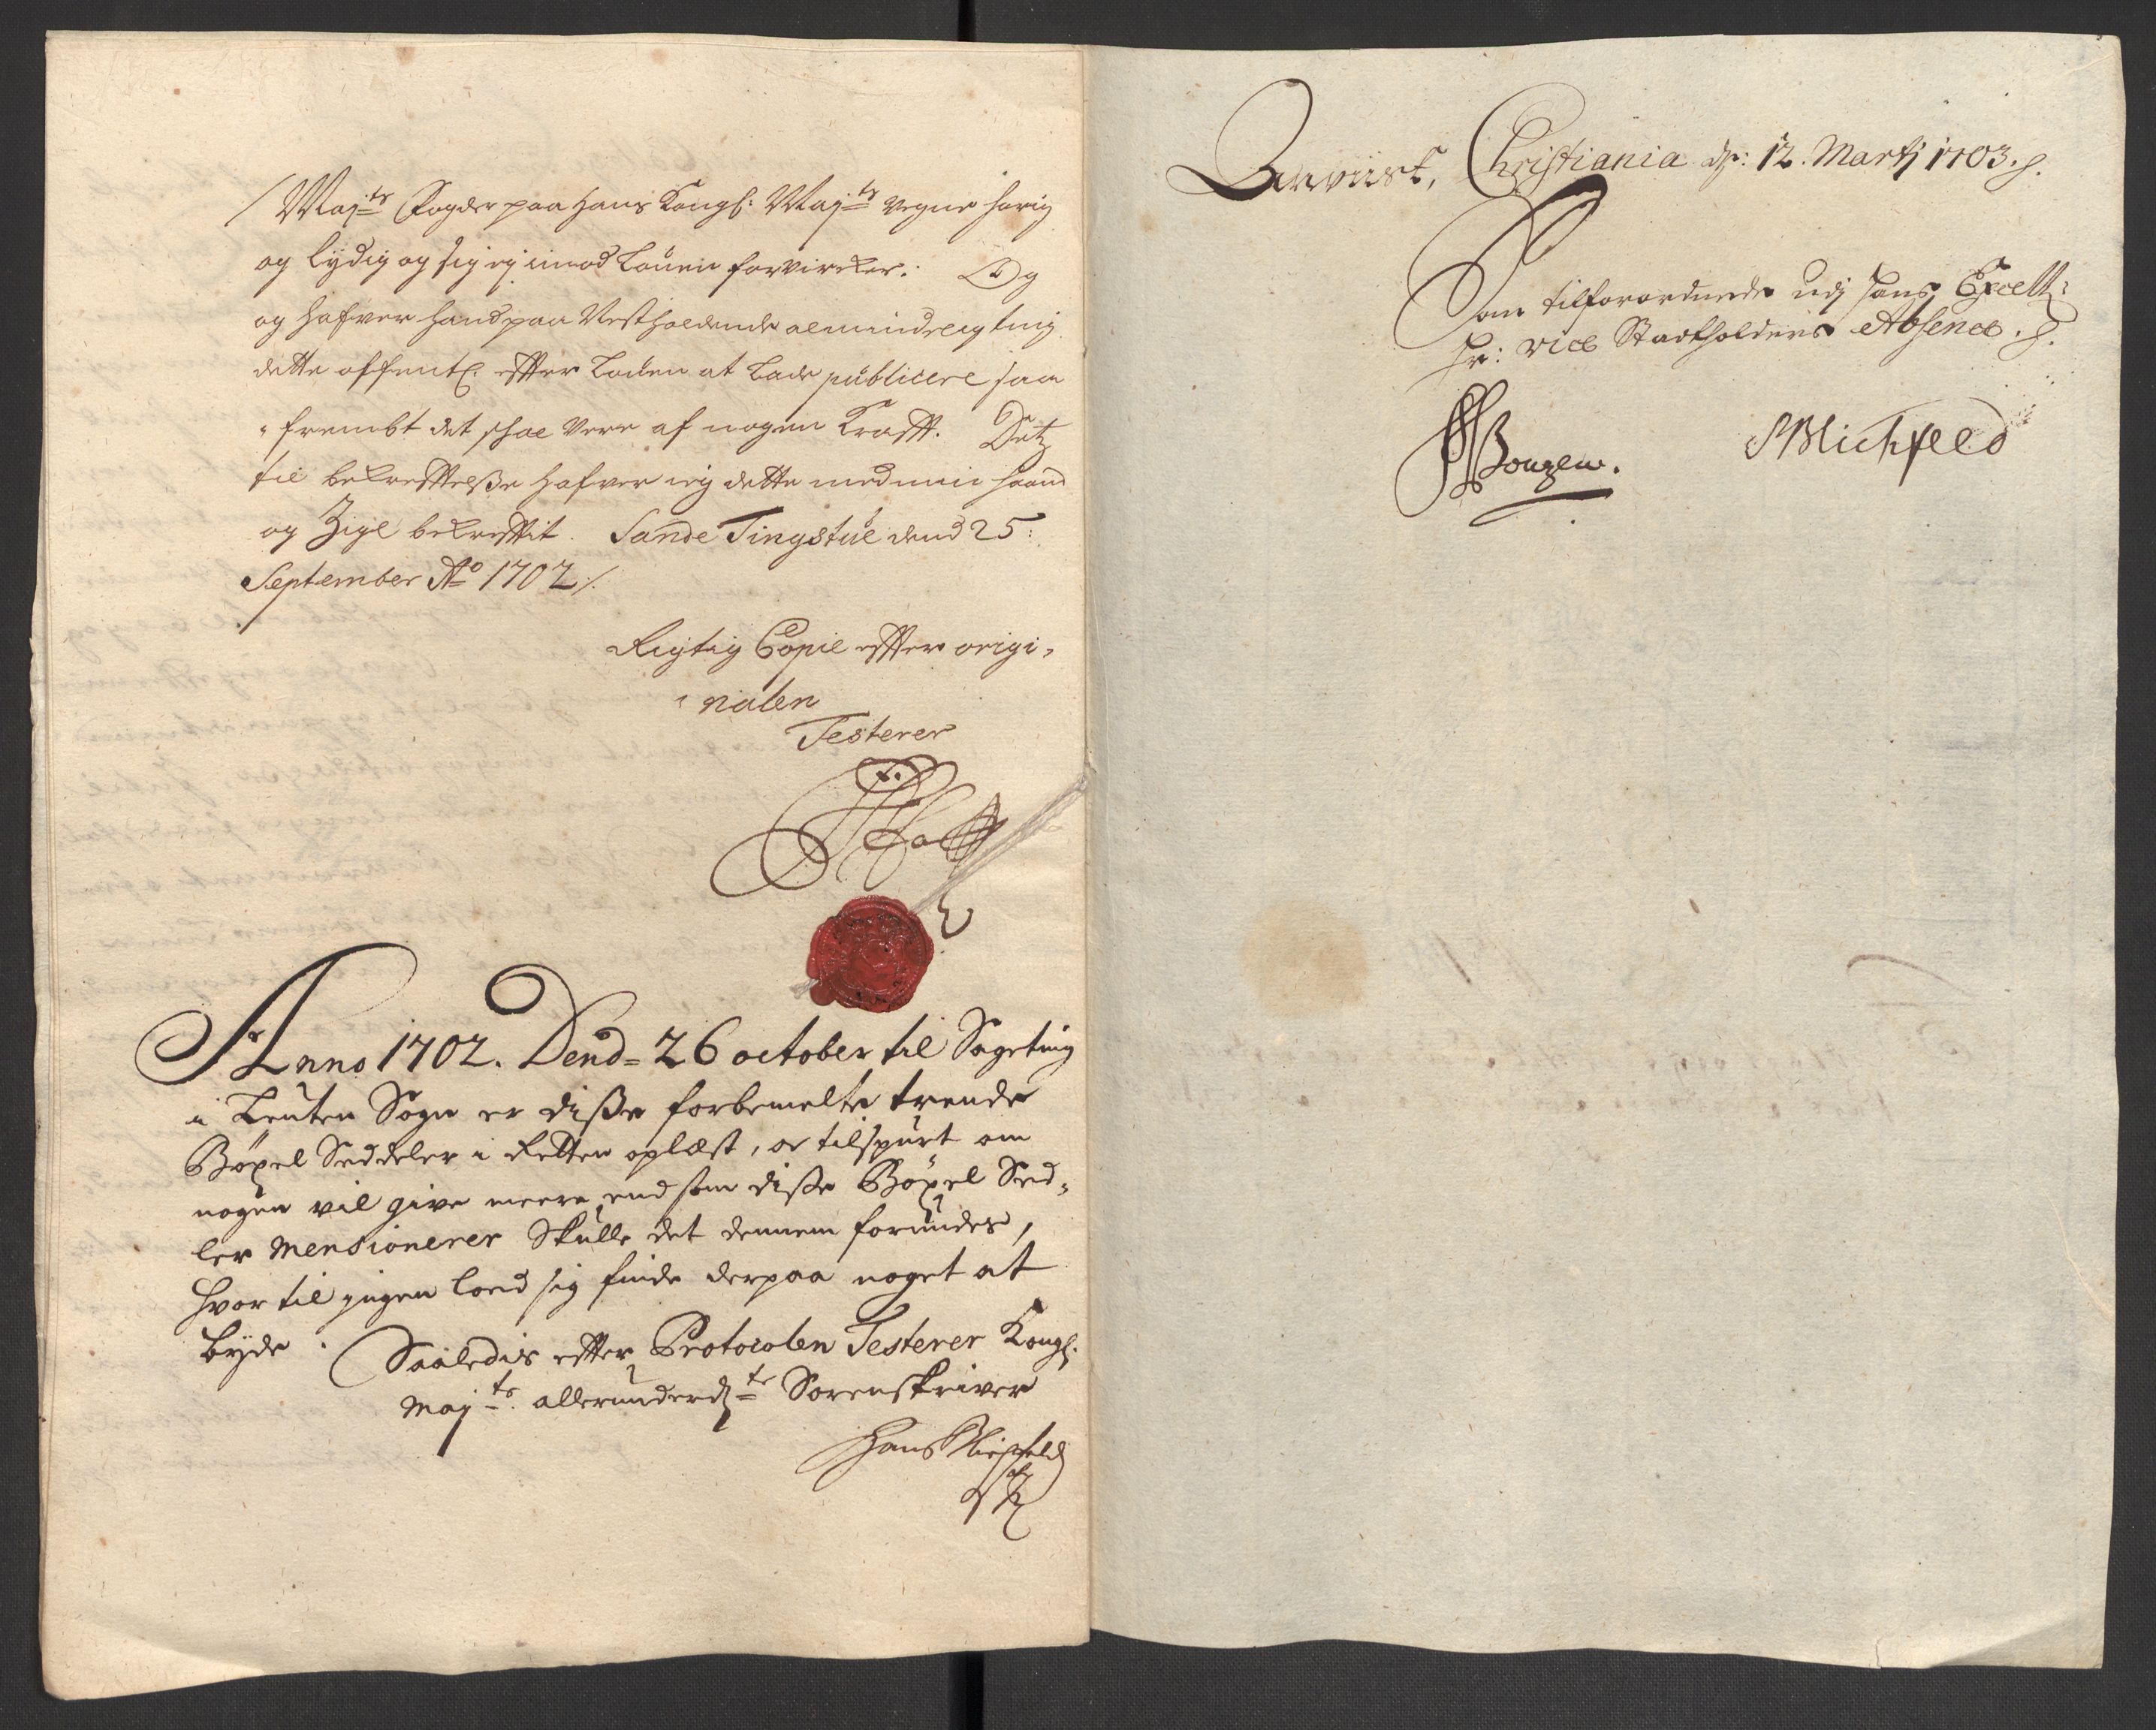 Maj:ts Fogder paa Hans Kongl: Maj:ts vegne hørig
og lydig og sig ej imod Louen forvircker. Og
og hafver hand paa Næstholdende almindelig ting
dette offentl. effter Louen at lade publicere saa
fremt det skal være af nogen Krafft. Detz
til bekrefftelsse hafver ieg dette med min haand
og Zigl bekrefftit. Sande Tingstue dend 25:
September Ao 1702 /.
Rigtig Copie effter origi-
nalen
Testerer
Anno 1702. Dend 26 october til Sageting
i Leuten Sogn er disse forbemelte trende
Böxel Seddeler i Retten oplæst, oc tilspurt om
nogen vil give meere end som disse Böxel Sed-
ler mensionerer Skulle det dennem forundes,
hvor til ingen loed sig finde derpaa noget at
byde. Saaledis effter Protocolen Testerer Kongl.
Maj:ts allerunderd:te Sorenskriver
Hans
Anviist, Christiania d: 12. Martj 1703.
Som tilforordnede udj Hans Excell:
Hr: vice Stadtholders Absence.